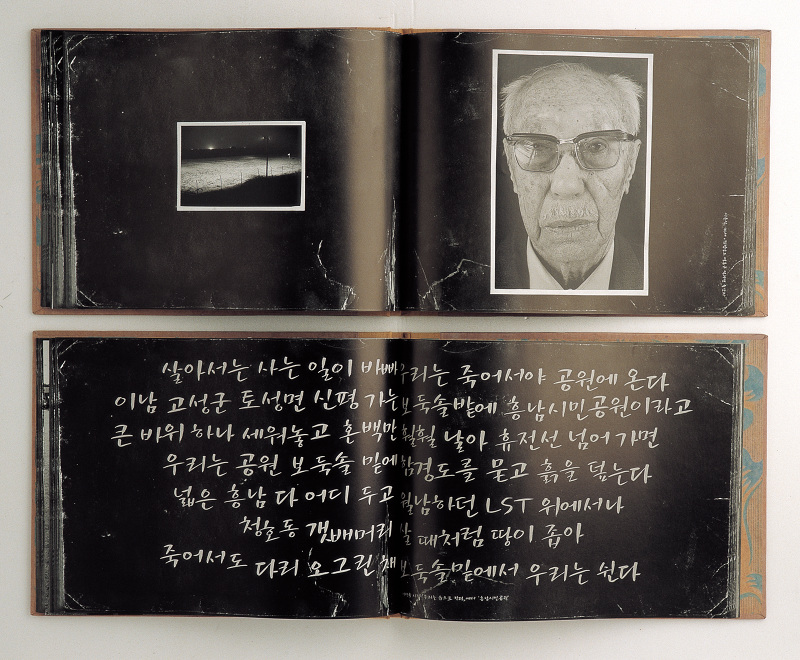 살아서는 사는 일이 바빠 우리는 죽어서야 공원에 온다
이남 고성군 토성면 신평 가는 보둑솔밭에 흥남시민공원이라고
큰 바위 하나 세워놓고 혼백만 훨훨 날아 휴전선 넘어 가면
우리는 공원 보둑솔 밑에 함경도를 묻고 흙을 덮는다
넓은 흥남 다 어디 두고 월남하던 LST 위에서나
청호동 갯배머리 살 때처럼 땅이 좁아
죽어서도 다리 오그린 채 보둑솔밑에서 우리는 쉰다